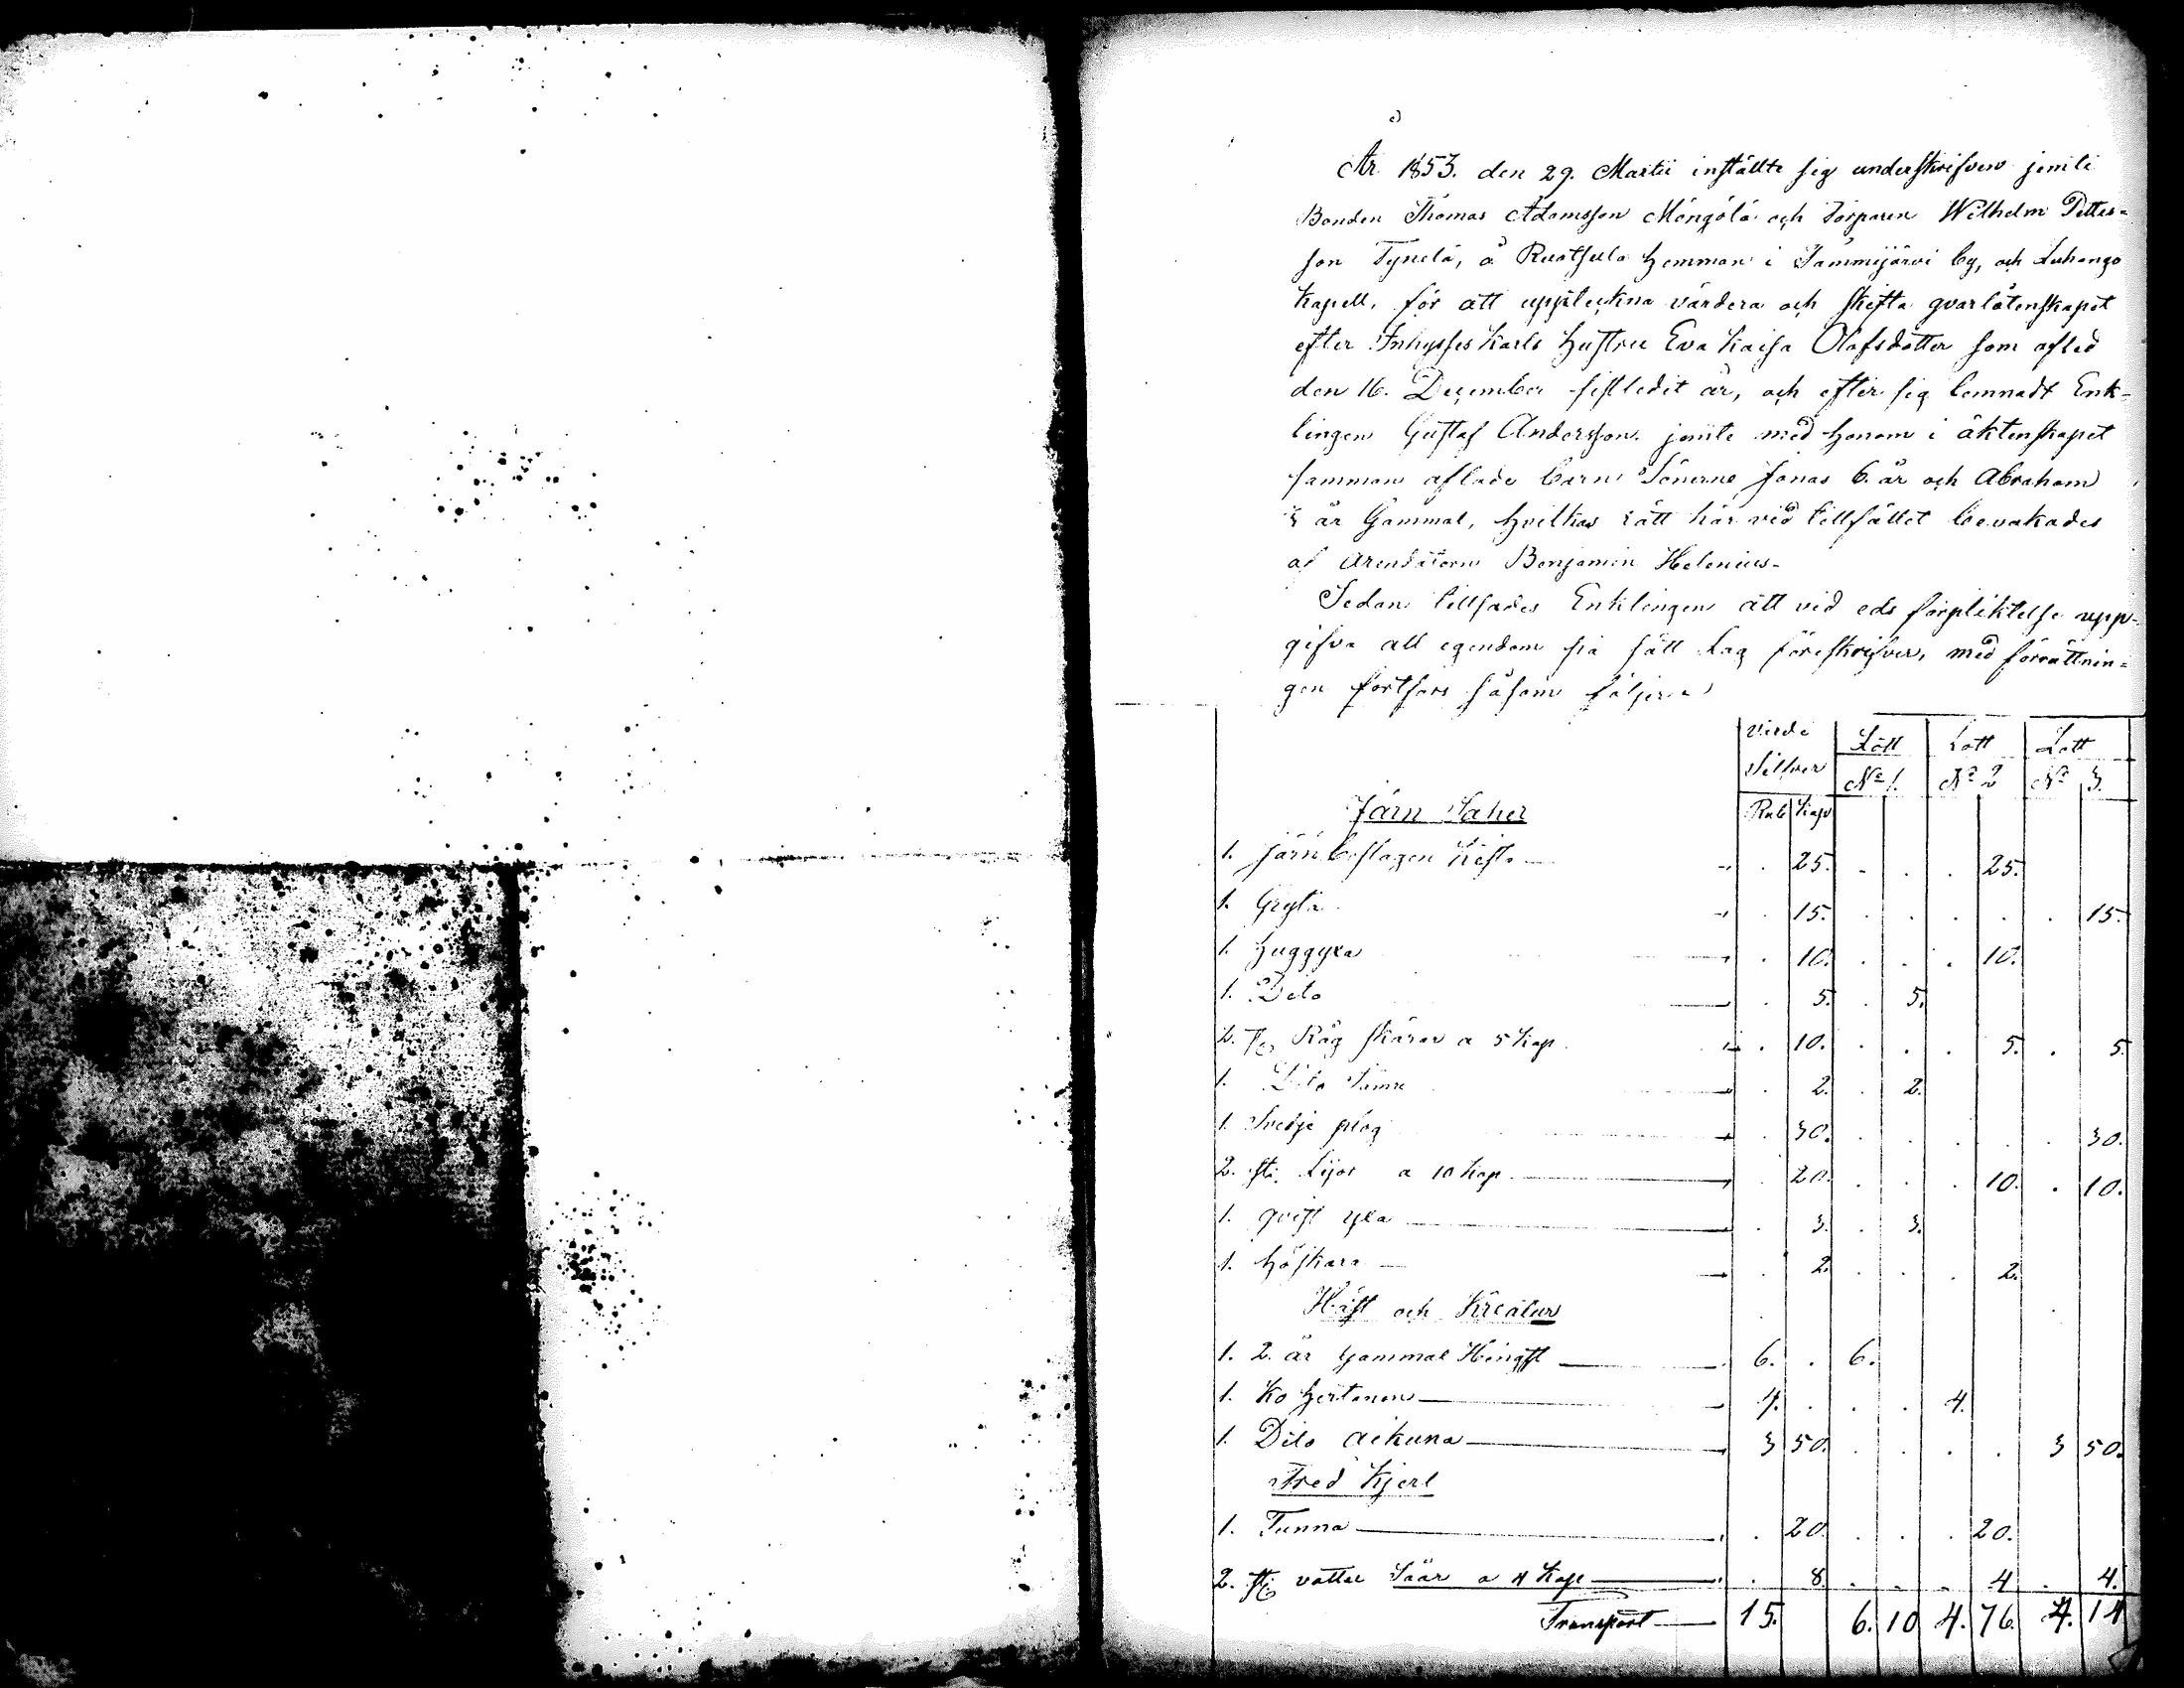 År 1853. den 29. Martii inställte sig underskrifven jemte
Bonden Thomas Adamsson Mängölä och Torparen Wilhelm Petters-
son Tynelä, å Ruotsula Hemman i Tammijärvi by, och Luhango
Kapell, för att uppteckna värdera och skifta qvarlåtenskapet
efter Inhyses Karls Hustru Eva Kaisa Olafsdotter som afled
den 16. December sistledit år, och efter sig lemnadt Enk-
lingen Gustaf Andersson jemte med honom i äktenskapet
samman aflade barn Sönerne Jonas 6. år och Abraham
3 år Gammal, hvilkas rätt här vid tillfället bevakades
af Arendatorn Benjamin Helenius-
Sedan tillsades Enklingen att vid eds förpliktelse upp-
gifva all egendom på sätt Lag föreskrifver, med förrättnin-
gen fortfors såsom följer
Värde Silfver Lott No 1. Lott No 2 Lott No 3.
Järn Saker Rub Kap
1. Järnbeslagen Kista 25. 25.
1. Gryta 15. 15.
1. Huggyxa 10. 10.
1. Dito 5. 5.
2. st Råg skäror a 5 Kap 10. 5. 5.
1. Dito Sämre 2. 2.
1. Svedje plog 30. 30.
2. st. Lijor a 10 Kap 20. 10. 10.
1. qvist yxa 3. 3.
1. Höskara 2. 2.
Häst och Kreatur
1. 2. år Gammal Hingst 6. 6.
1. Ko Hertanen 4. 4.
1. Dito Aikuna 3 50. 3 50.
Träd Kjerl
1. Tunna 20. 20.
2. st vatten Såår a 4 Kap 8. 4 4.
Transport 15. 6. 10 4. 76. 4. 14